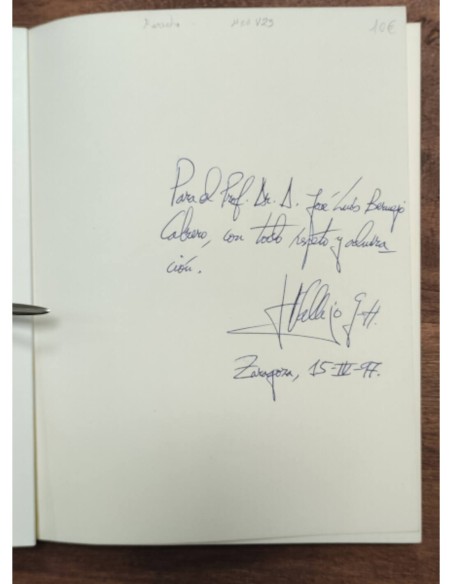 10€
Para el Prof. Dr. D. José Luis Bermejo
Cabrero, con todo respeto y admira-
ción.
J Vallejo G-H.
Zaragoza, 15-IV-97.